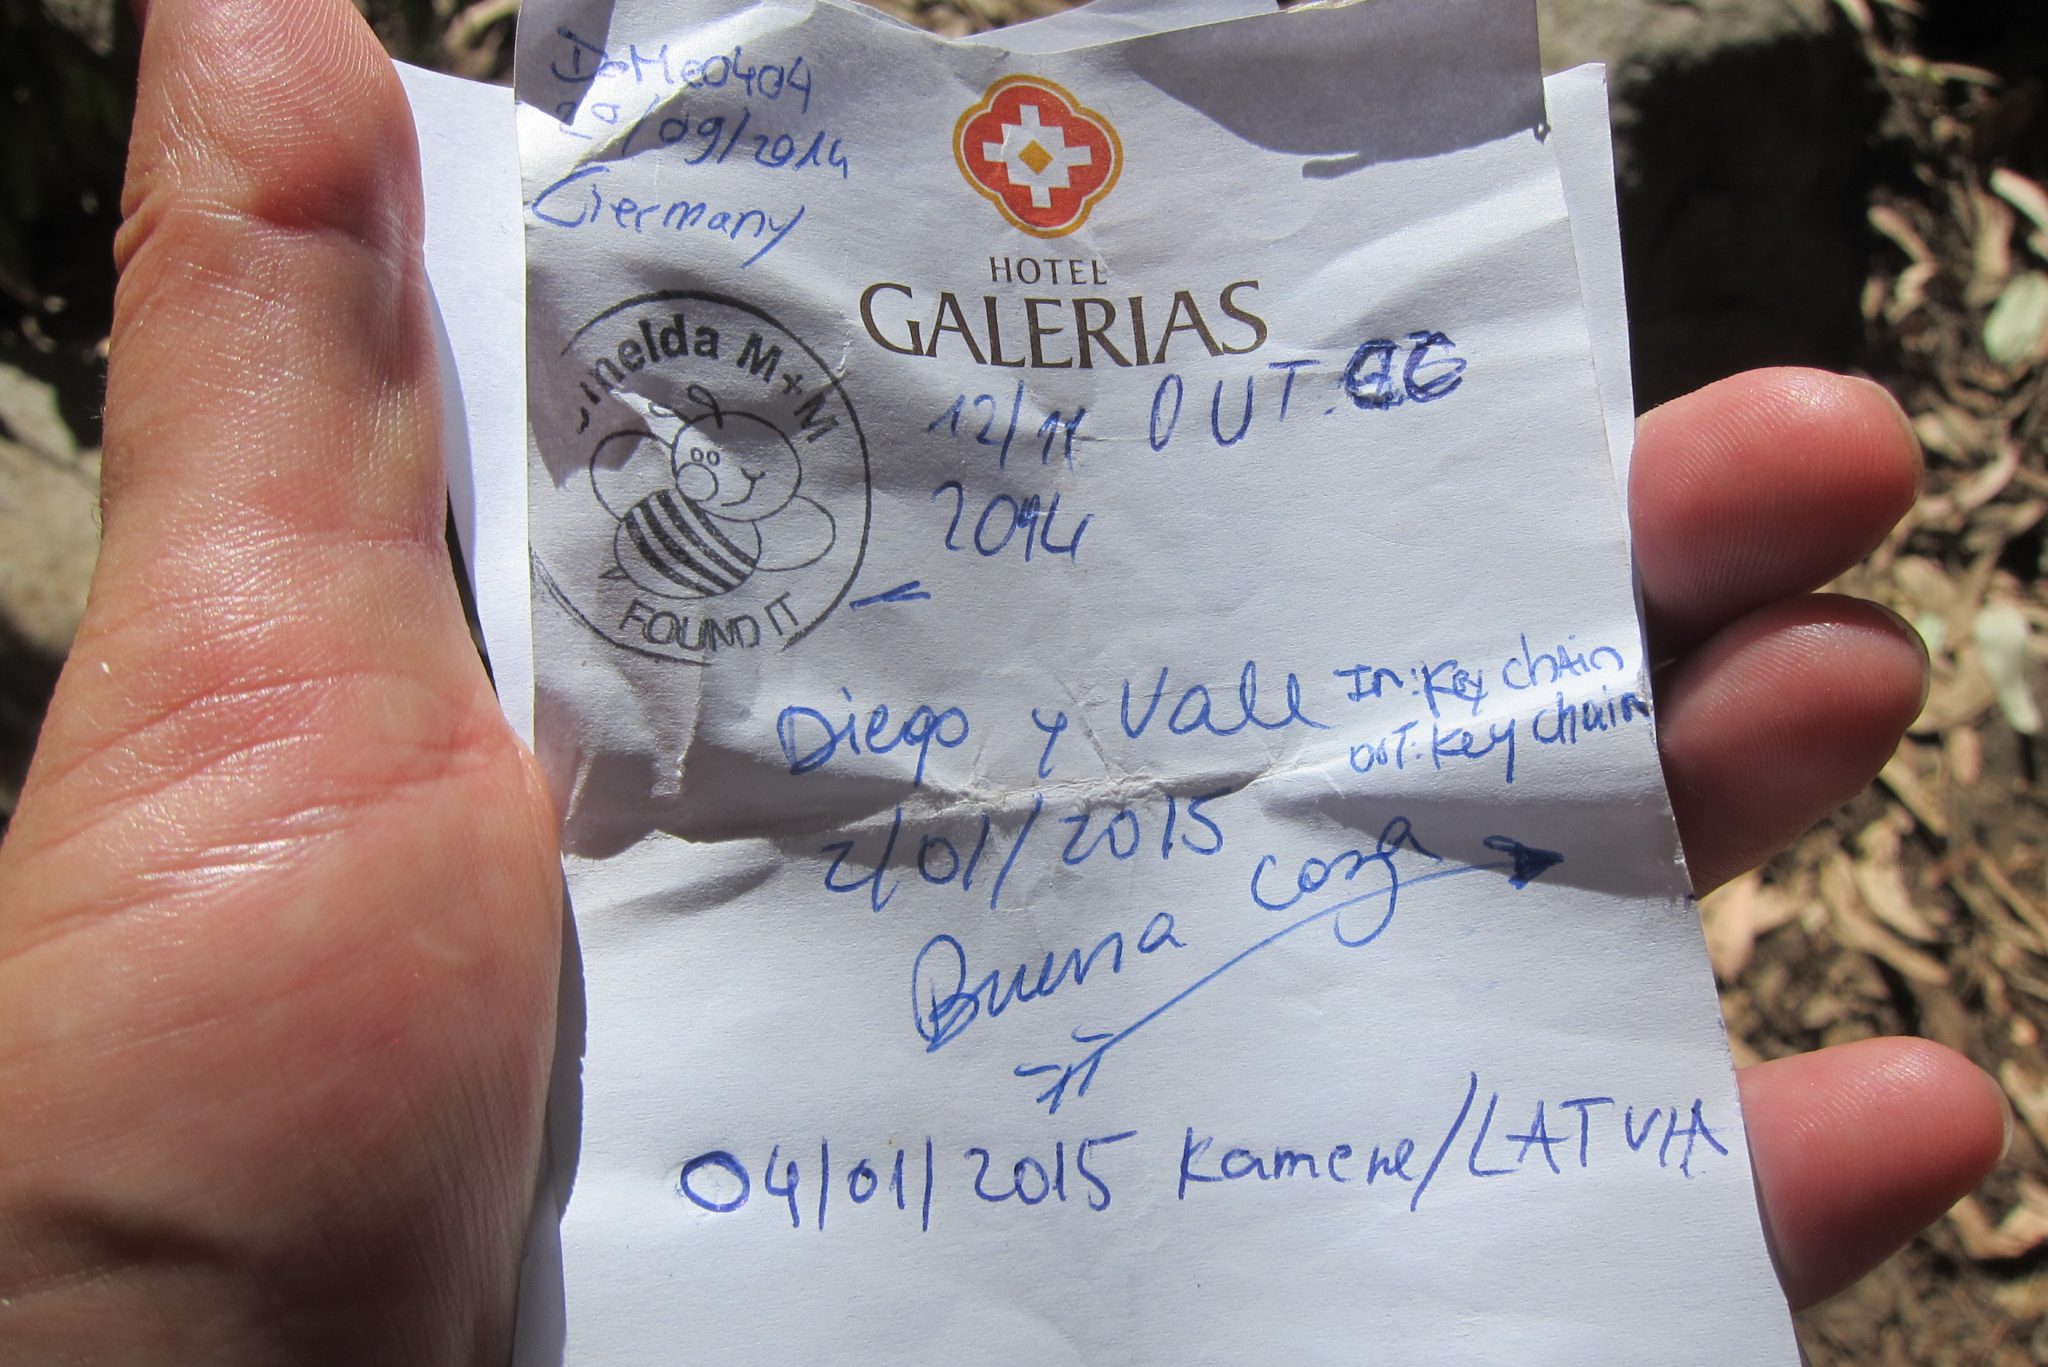 DoMe0404
29/09/2014
Germany
HOTEL
GALERIAS
imelda M+M
FOUND IT
12/11 OUT.
2014
Diego y Vale
In: Key chain
OUT: Key chain
2/01/2015
Buena caza
04/01/2015 Kamene/LATVIA